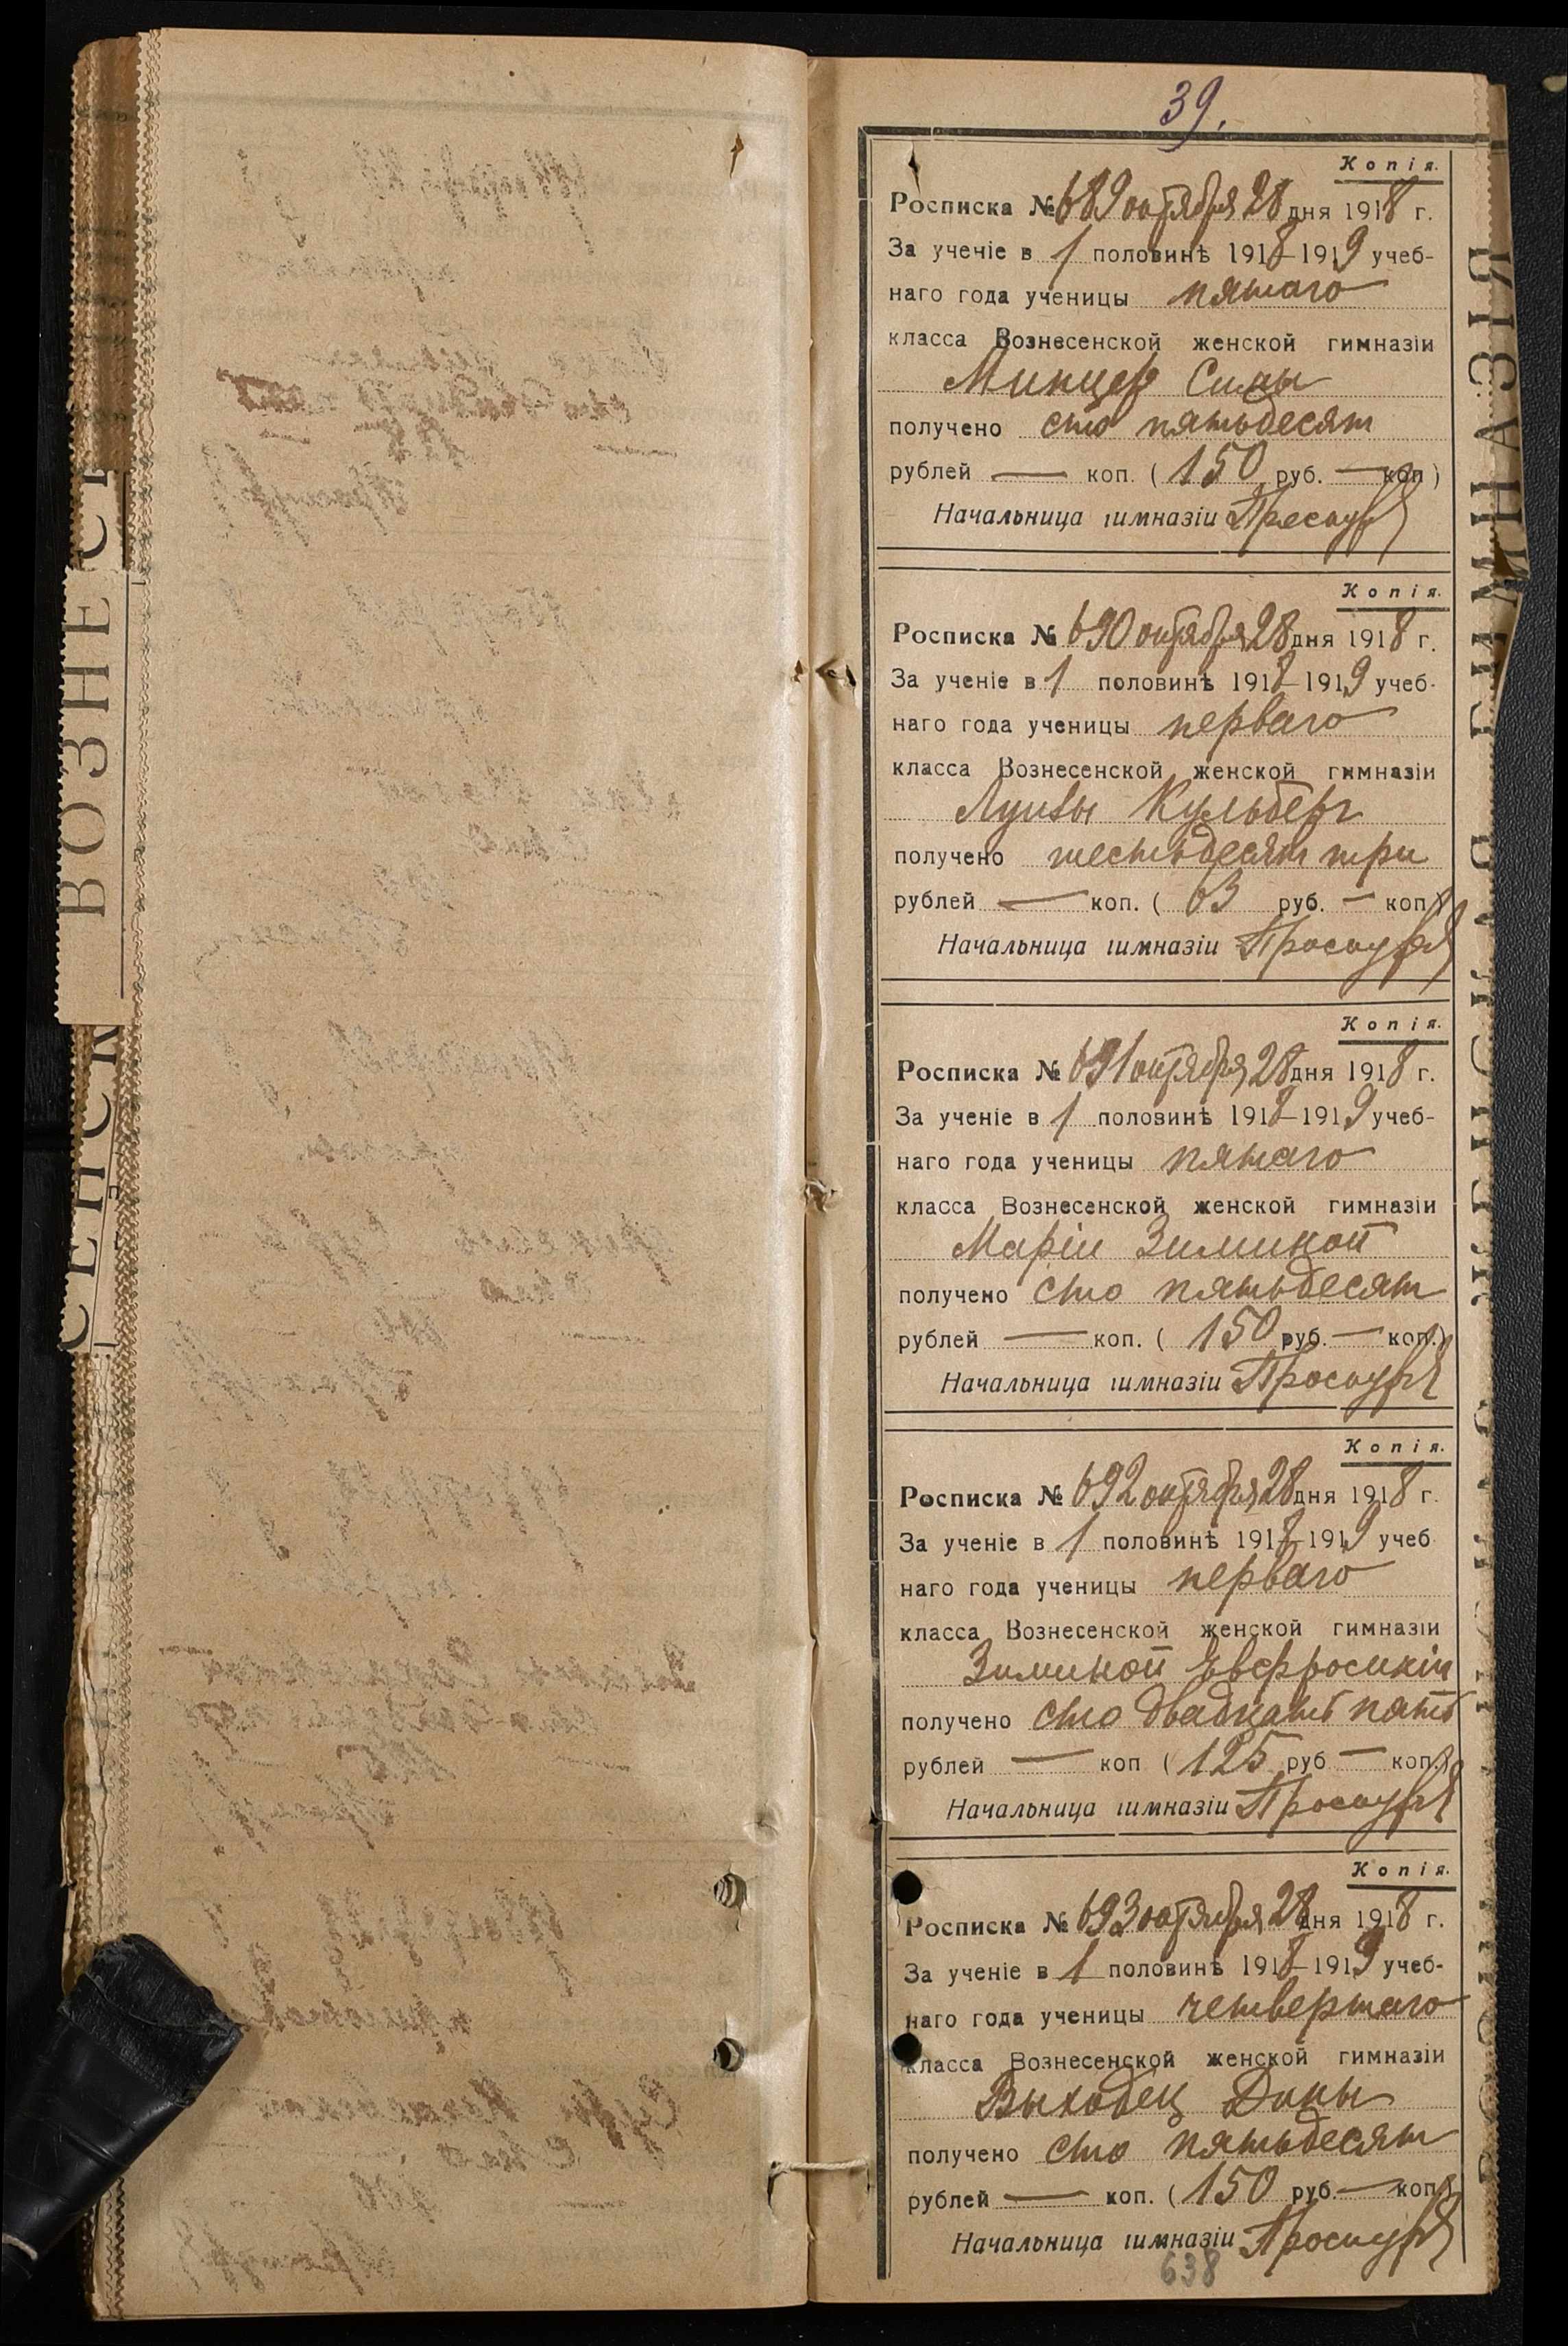 39.
Копія.
Росписка № 689 октября 28 дня 1918 г.
За ученіе в 1 половинѣ 1918–1919 учеб-
наго года ученицы пятаго
класса Вознесенской женской гимназіи
Минцер Симы
получено сто пятьдесят
рублей — коп. (150 руб. — коп)
Начальница гимназіи
Копія.
Росписка № 690 октября 28 дня 1918 г.
За ученіе в 1 половинѣ 1918–1919 учеб-
наго года ученицы перваго
класса Вознесенской женской гимназіи
Луизы Кульберг
получено шестьдесят три
рублей — коп. (63 руб. — коп)
Начальница гимназіи
Копія.
Росписка № 691 октября 28 дня 1918 г.
За ученіе в 1 половинѣ 1918–1919 учеб-
наго года ученицы пятаго
класса Вознесенской женской гимназіи
Маріи Зиминой
получено сто пятьдесят
рублей — коп. (150 руб. — коп.)
Начальница гимназіи
Копія.
Росписка № 692 октября 28 дня 1918 г.
За ученіе в 1 половинѣ 1918–1919 учеб
наго года ученицы перваго
класса Вознесенской женской гимназіи
Зиминой Евфросиніи
получено сто двадцать пять
рублей — коп (125 руб — коп.)
Начальница гимназіи
Копія.
Росписка № 693 октября 28 дня 1918 г.
За ученіе в 1 половинѣ 1918–1919 учеб-
наго года ученицы четвертаго
класса Вознесенской женской гимназіи
Выходец Доны
получено сто пятьдесят
рублей — коп. (150 руб. — коп)
Начальница гимназіи
638
ВОЗНЕ